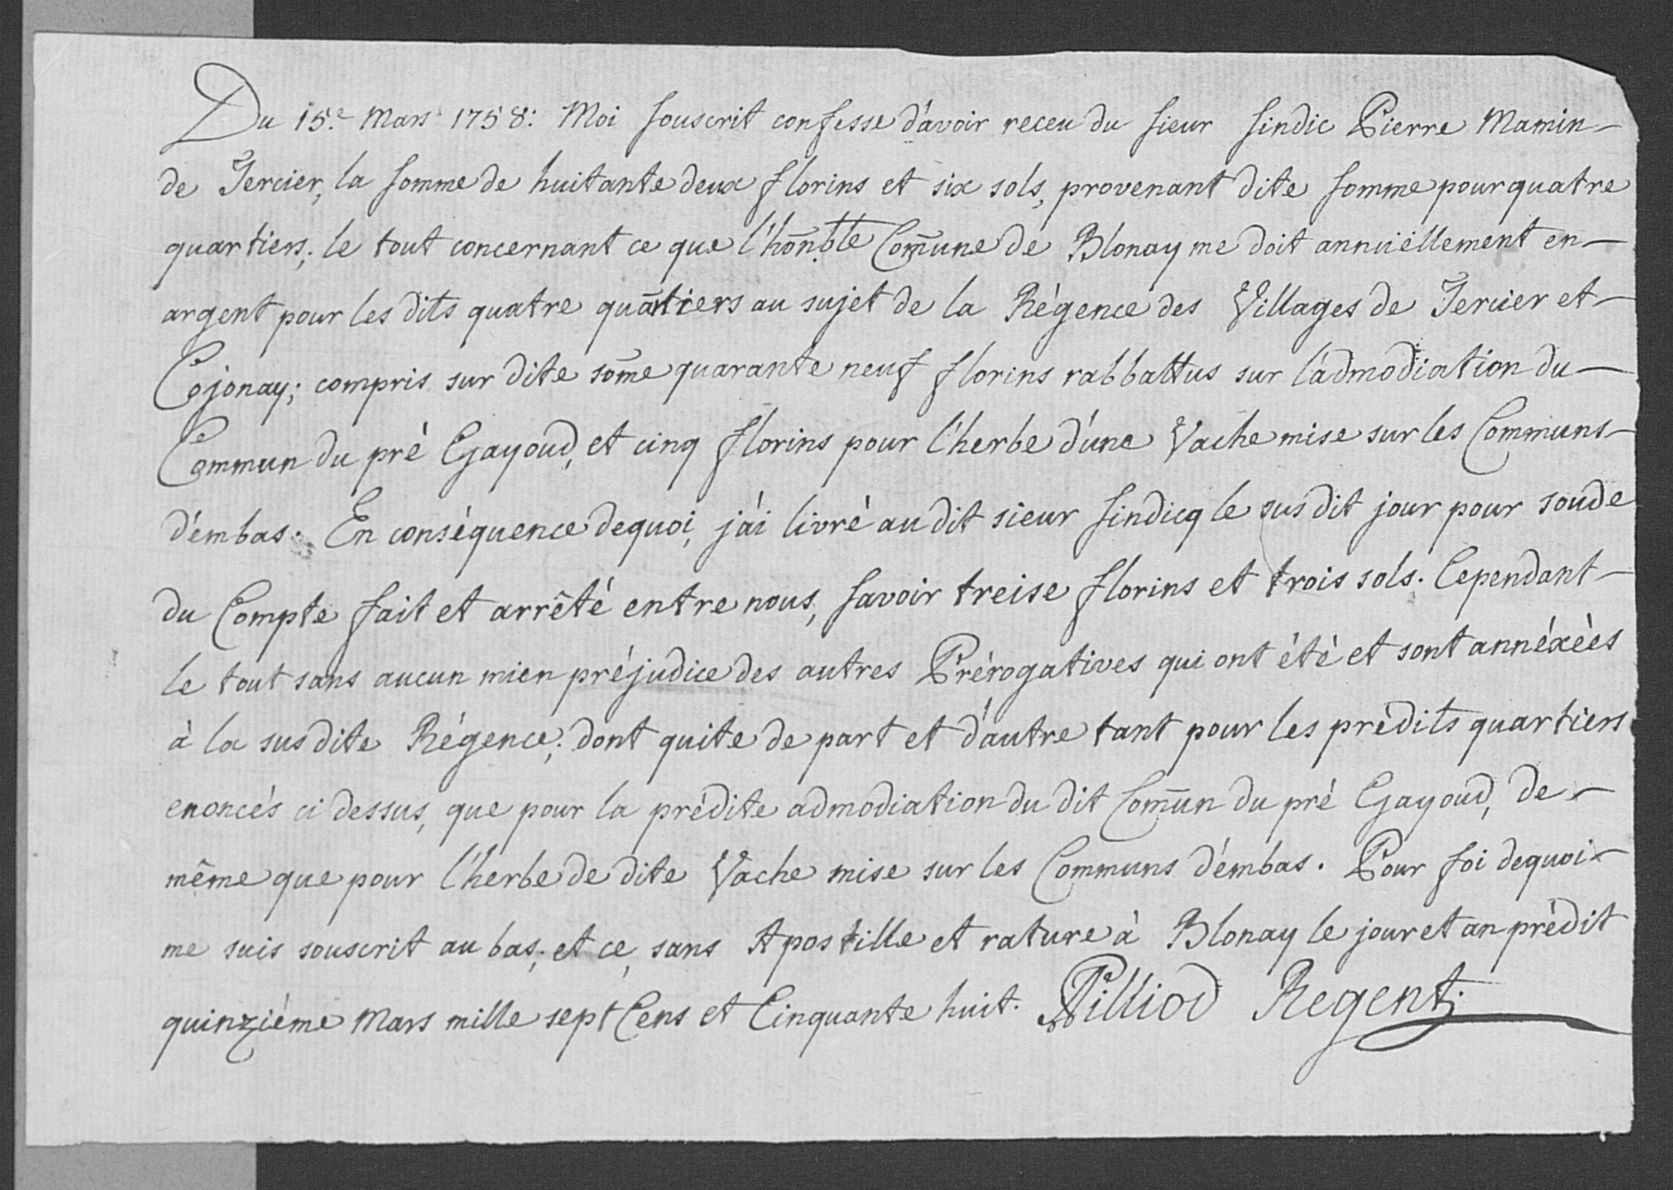 Du 15.e Mars 1758: Moi souscrit confesse d'avoir receu du sieur sindic Pierre Mamin
de Tercier, la somme de huitante deux florins et six sols, provenant dite somme pour quatre
quartiers; le tout concernant ce que l'hon̄.ble Com̄une de Blonay me doit annuëllement en
argent pour les dits quatre quartiers au sujet de la Régence des Villages de Tercier et
Cojonay; compris sur dite som̄e quarante neuf florins rabbattus sur l'admodiation du
Commun du pré Gayoud, et cinq florins pour l'herbe d'une Vache mise sur les Communs
d'embas. En conséquence dequoi, j'ai livré au dit sieur sindicq le susdit jour pour soude
du Compte fait et arrêté entre nous, savoir treise florins et trois sols. Cependant
le tout sans aucun mien préjudice des autres Prérogatives qui ont été et sont annéxèés
à la sus dite Régence; dont quite de part et d'autre tant pour les prédits quartiers
enoncés ci dessus, que pour la prédite admodiation du dit Com̄un du pré Gayoud, de
même que pour l'herbe de dite Vache mise sur les Communs d'embas. Pour foi dequoi
me suis souscrit au bas; et ce, sans Apostille et rature à Blonay le jour et an prédit
quinziéme Mars mille sept Cens et Cinquante huit. Pilliod Regent.